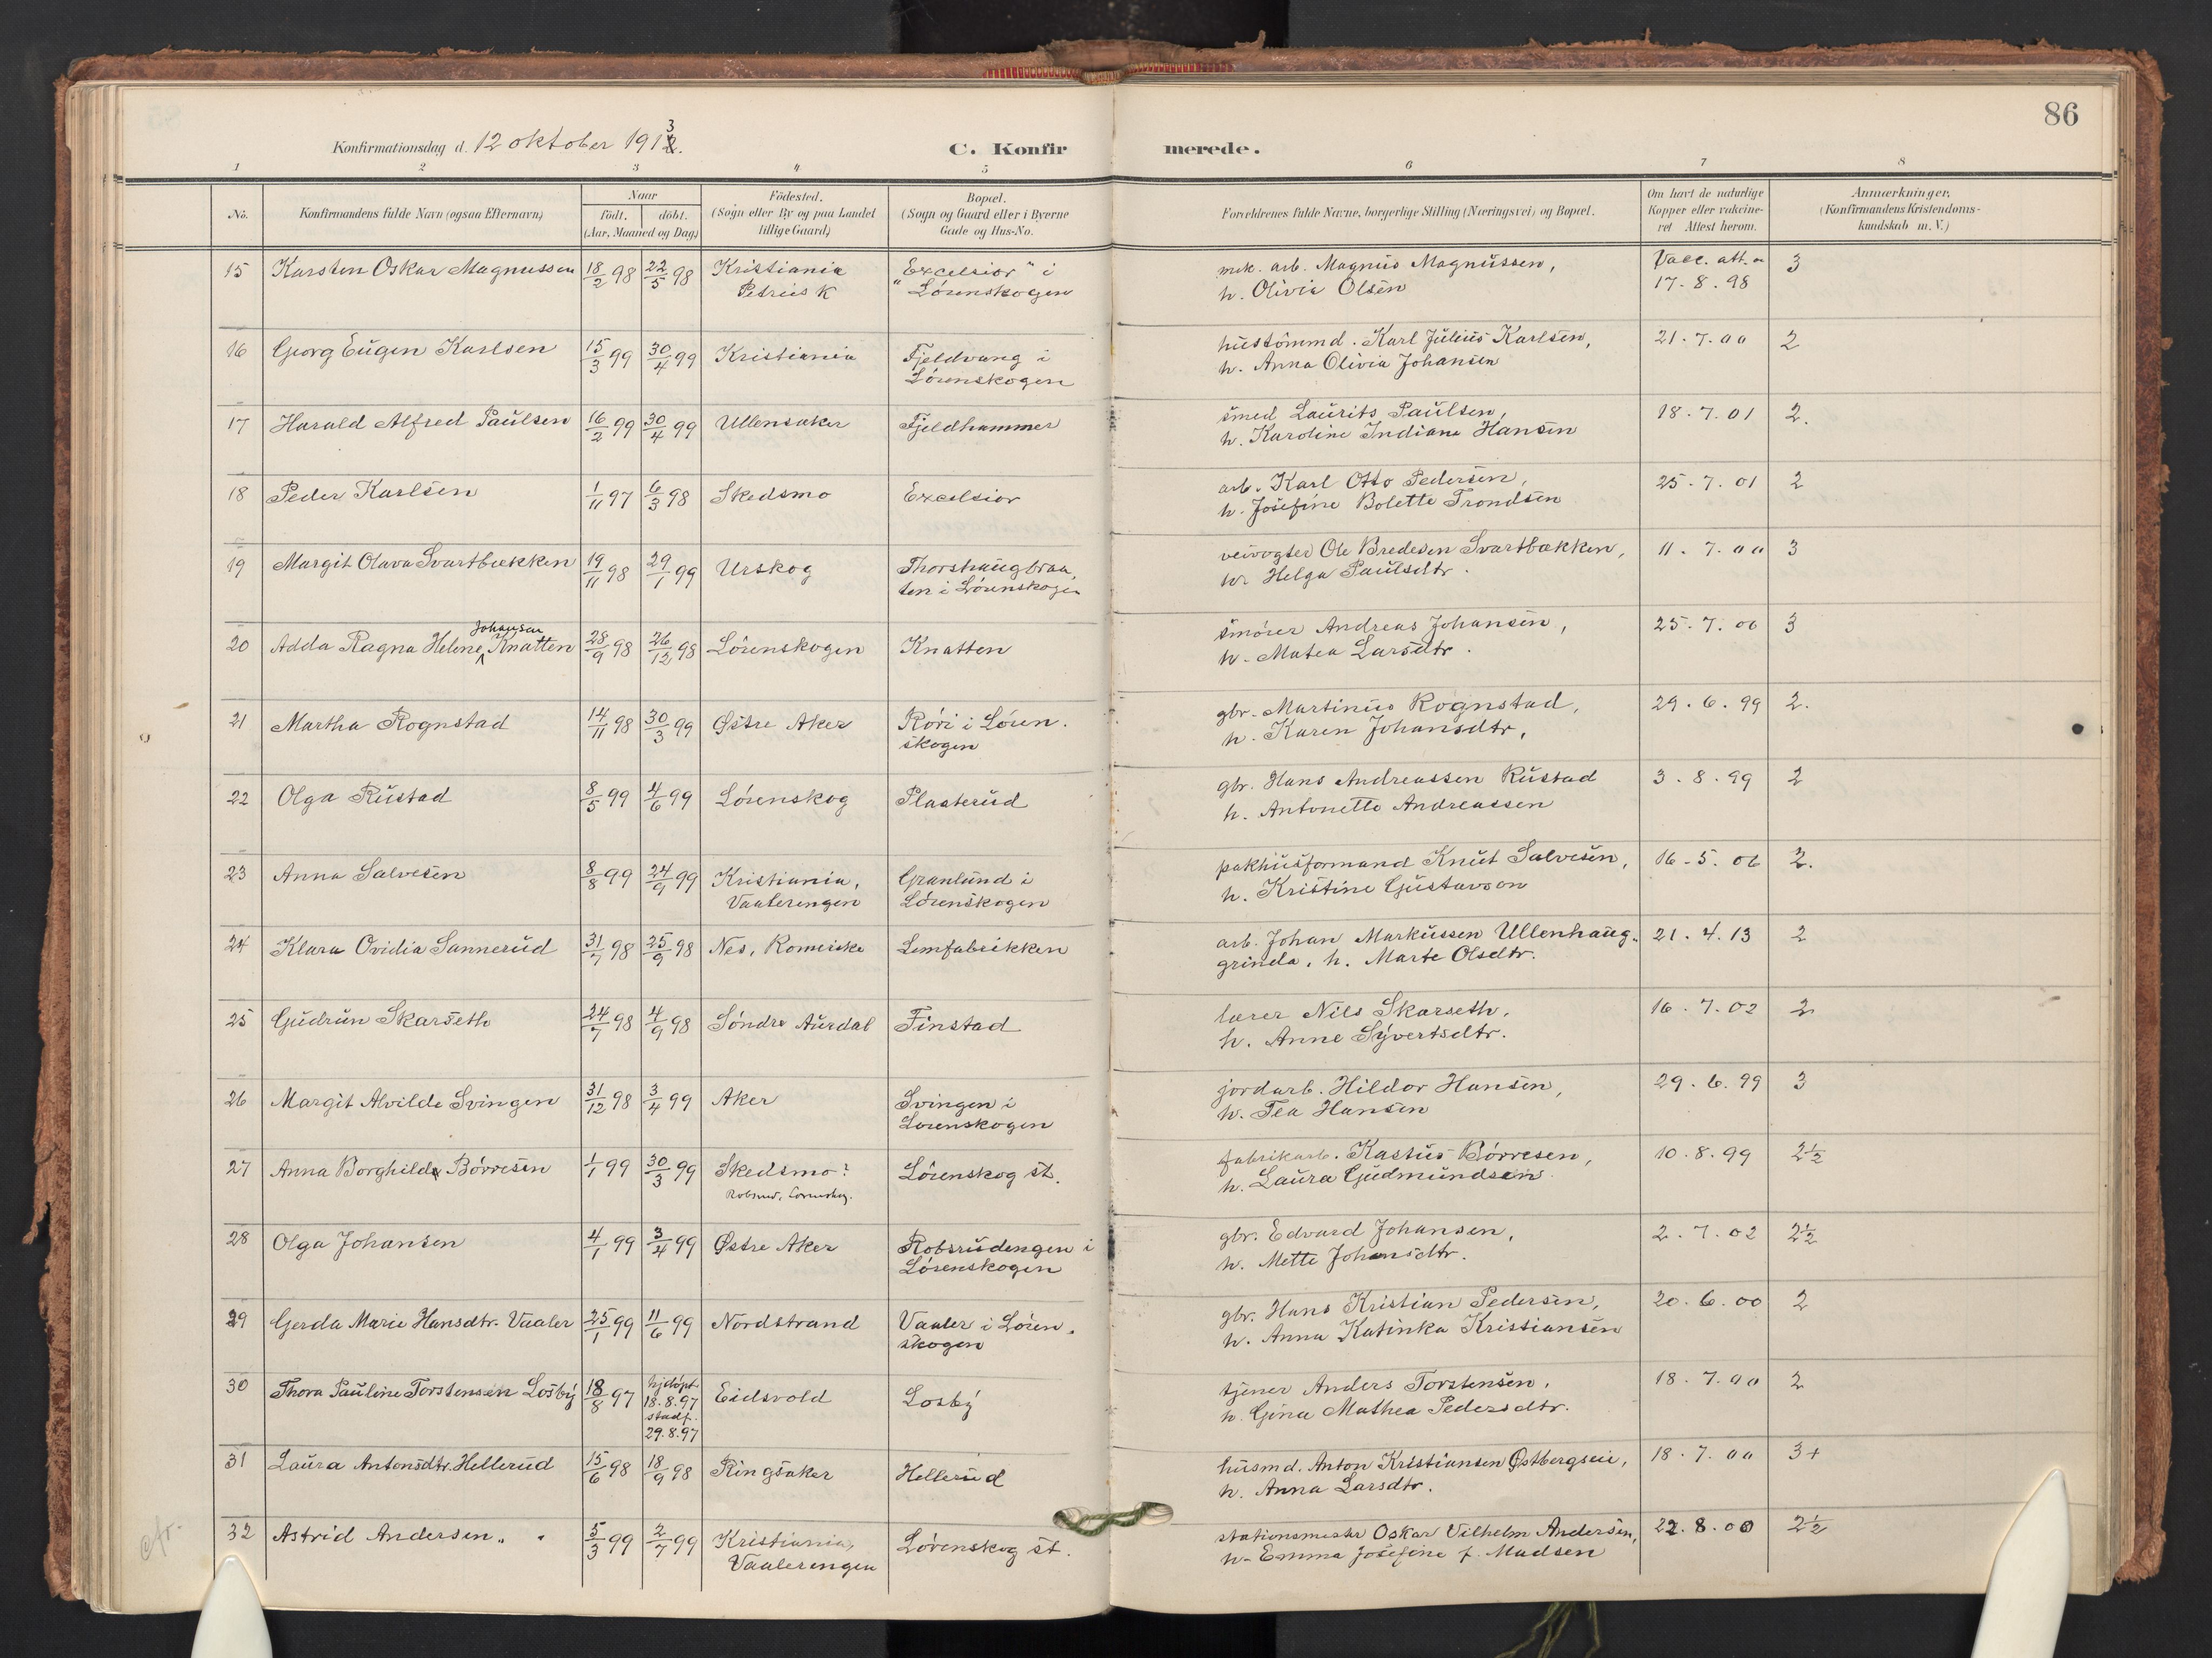 86
Konfirmationsdag d. 12 oktober 1913.
C. Konfirmerede.
1 2 3 4 5 6 7 8
No.
Konfirmandens fulde Navn (ogsaa Efternavn)
Naar
födt. döbt.
(Aar, Maaned og Dag)
Födested.
(Sogn eller By og paa Landet
tillige Gaard)
Bopæl.
(Sogn og Gaard eller i Byerne
Gade og Hus-No.
Forældrenes fulde Navne, borgerlige Stilling (Næringsvei) og Bopæl.
Om havt de naturlige
Kopper eller vakcine-
ret Attest herom.
Anmærkninger.
(Konfirmandens Kristendoms-
kundskab m. V.)
15 Karsten Oskar Magnussen 18/2 98 22/5 98 Kristiania "Excelsior" i mek. arb. Magnus Magnussen, Vacc. att. 3
Petrus K Lörenskogen h. Olivia Olsen 17-8.98
16 Georg Eugen Karlsen 15/3 99 30/4 99 Kristiania Fjeldvang i hustömmd. Karl Julius Karlsen, 21.7.00 2
Lörenskogen h. Anna Olivia Johansen
17 Harald Alfred Paulsen 16/2 99 30/4 99 Ullensaker Fjeldhammer smed Laurits Paulsen, 18.7.01 2.
h. Karoline Indiane Hansen
18 Peder Karlsen 1/11 97 6/3 98 Skedsmo Excelsior arb. Karl Otto Pedersen, 25.7.01 2
h. Josefine Bolette Trondsen
19 Margit Olava Svartbækken 19/11 98 29/1 99 Urskog Thorshaugbraa- veivogter Ole Bredesen Svartbækken, 11.7.00 3
ten i Lörenskogen Helga Paulsdtr.
20 Adda Ragna Helene Johansen Knatten 28/9 98 26/12 98 Lörenskogen Knatten smörer Andreas Johansen, 25.7.06 3
h. Matea Larsdtr.
21 Martha Rognstad 14/11 98 30/3 99 Østre Aker Röri i Lören- gbr. Martinus Rognstad, 29.6.99 2.
skogen h. Karen Johansdtr,
22 Olga Rustad 8/5 99 4/6 99 Lörenskog Plaaterud gbr. Hans Andreassen Rustad 3.8.99 2
h. Antonette Andreassen
23 Anna Salvesen 8/8 99 24/9 99 Kristiania, Granlund i pakhusformand Knut Salvesen, 16-5.06 2.
Vaalerengen Lörenskogen h. Kristine Gustavson
24 Klara Ovidia Sannerud 31/7 98 25/9 98 Nes, Romerike Limfabrikken arb. Johan Markussen Ullenhaug- 21.4.13 2
grinda. h. Marte Olsdtr.
25 Gudrun Skarseth 24/7 98 4/9 98 Söndre Aurdal Finstad lærer Nils Skarseth, 16.7.02 2
h. Anne Syvertsdtr.
26 Margit Alvilde Svingen 31/12 98 3/4 99 Aker Svingen i jordarb. Hildor Hansen, 29.6.99 3
Lörenskogen h. Tea Hansen
27 Anna Borghild Börresen 1/1 99 30/3 99 Skedsmo? Lörenskog st. fabrikarb. Kastus Börresen, 10.8.99 2½
Robsrud, Lörenskog. h. Laura Gudmundsen
28 Olga Johansen 4/1 99 3/4 99 Østre Aker Robsrudengen i gbr. Edvard Johansen, 2.7.02 2½
Lörenskogen h. Mette Johansdtr.
29 Gerda Marie Hansdtr. Vaaler 25/1 99 11/6 99 Nordstrand Vaaler i Lören- gbr. Hans Kristian Pedersen, 20.6.00 2
skogen h. Anna Katinka Kristiansen
30 Thora Pauline Torstensen Losby 18/8 97 hjdöpt 18.8.97 stadf. 29.8.97 Eidsvold Losby tjener Anders Torstensen, 18.7.00 2
h. Gina Mathea Pedersdtr.
31 Laura Antonsdtr. Hellerud 15/6 98 18/9 98 Ringsaker Hellerud husmd. Anton Kristiansen Østbergseie, 18.7.00 3+
h. Anna Larsdtr.
32 Astrid Andersen 5/3 99 2/7 99 Kristiania, Lörenskog st. stationsmester Oskar Vilhelm Andersen, 22.8.00 2½
Vaalerengen h. Emma Josefine f. Madsen